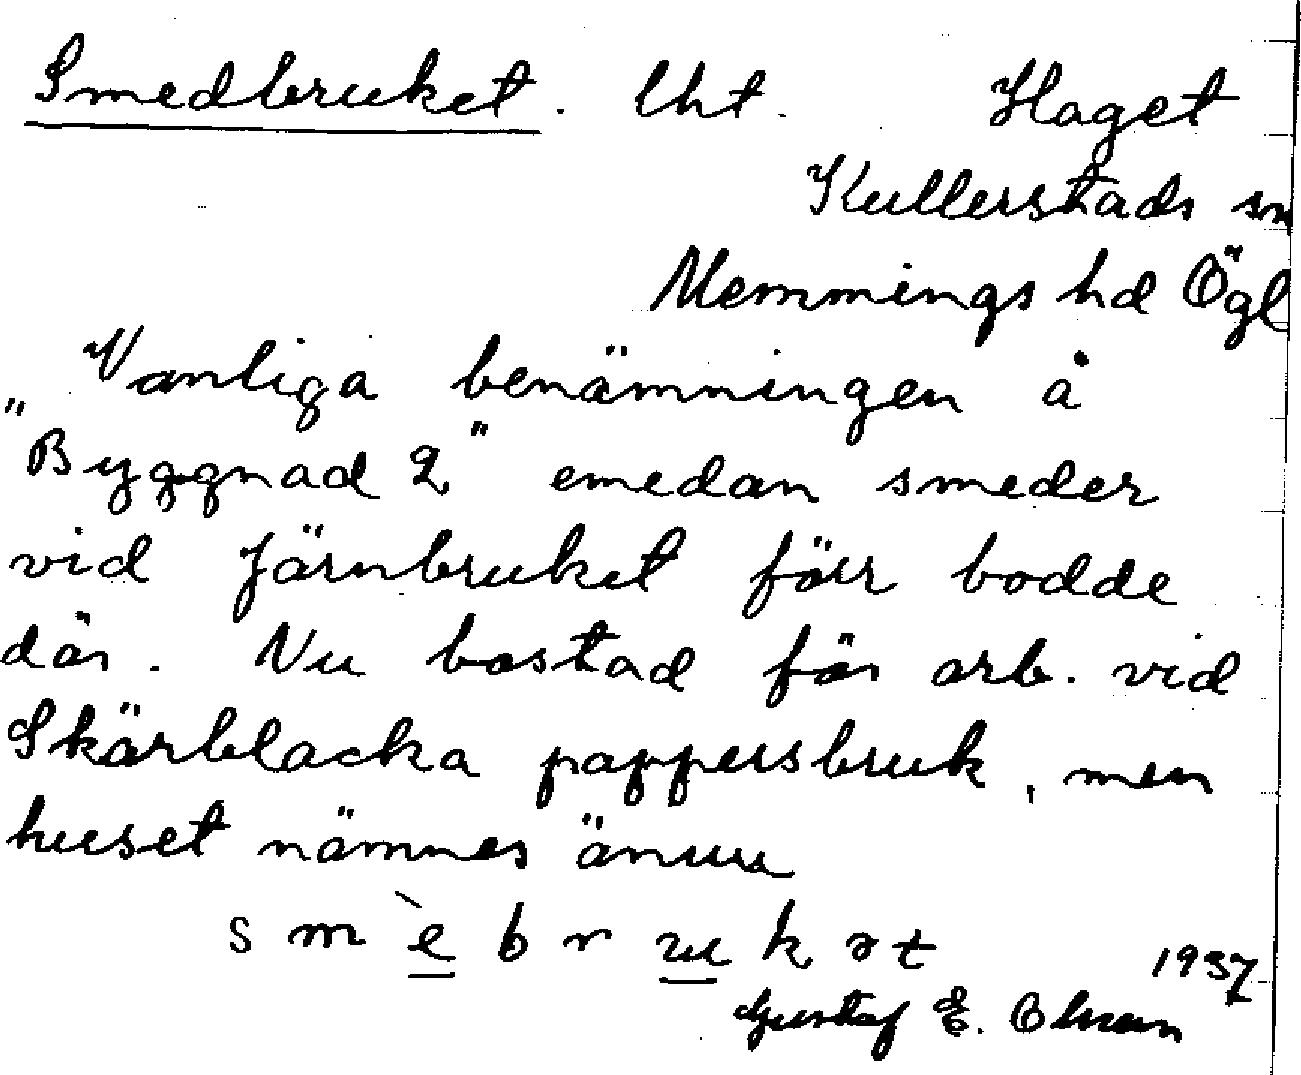 Smedbruket. lht. Haget
Kullerstads sn
Memmings hd Ögl
Vanliga benämningen å
"Byggnad 2" emedan smeder
vid Järnbruket förr bodde
där. Nu bostad för arb. vid
Skärblacka pappersbruk, men
huset nämnes ännu
s m è b r u k ə t
1937
Gustaf E. Olsson